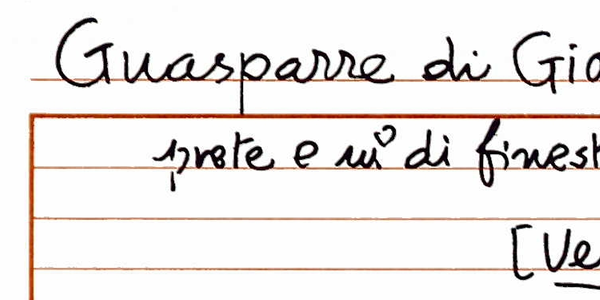 Guasparre di Gio
prete e mº di finest
[Ve